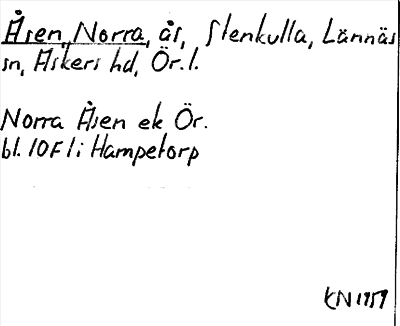 Åsen, Norra, ås, Stenkulla, Lännäs
sn, Askers hd, Ör. l.
Norra Åsen ek Ör.
bl. 10F 1i Hampetorp
KN 1959